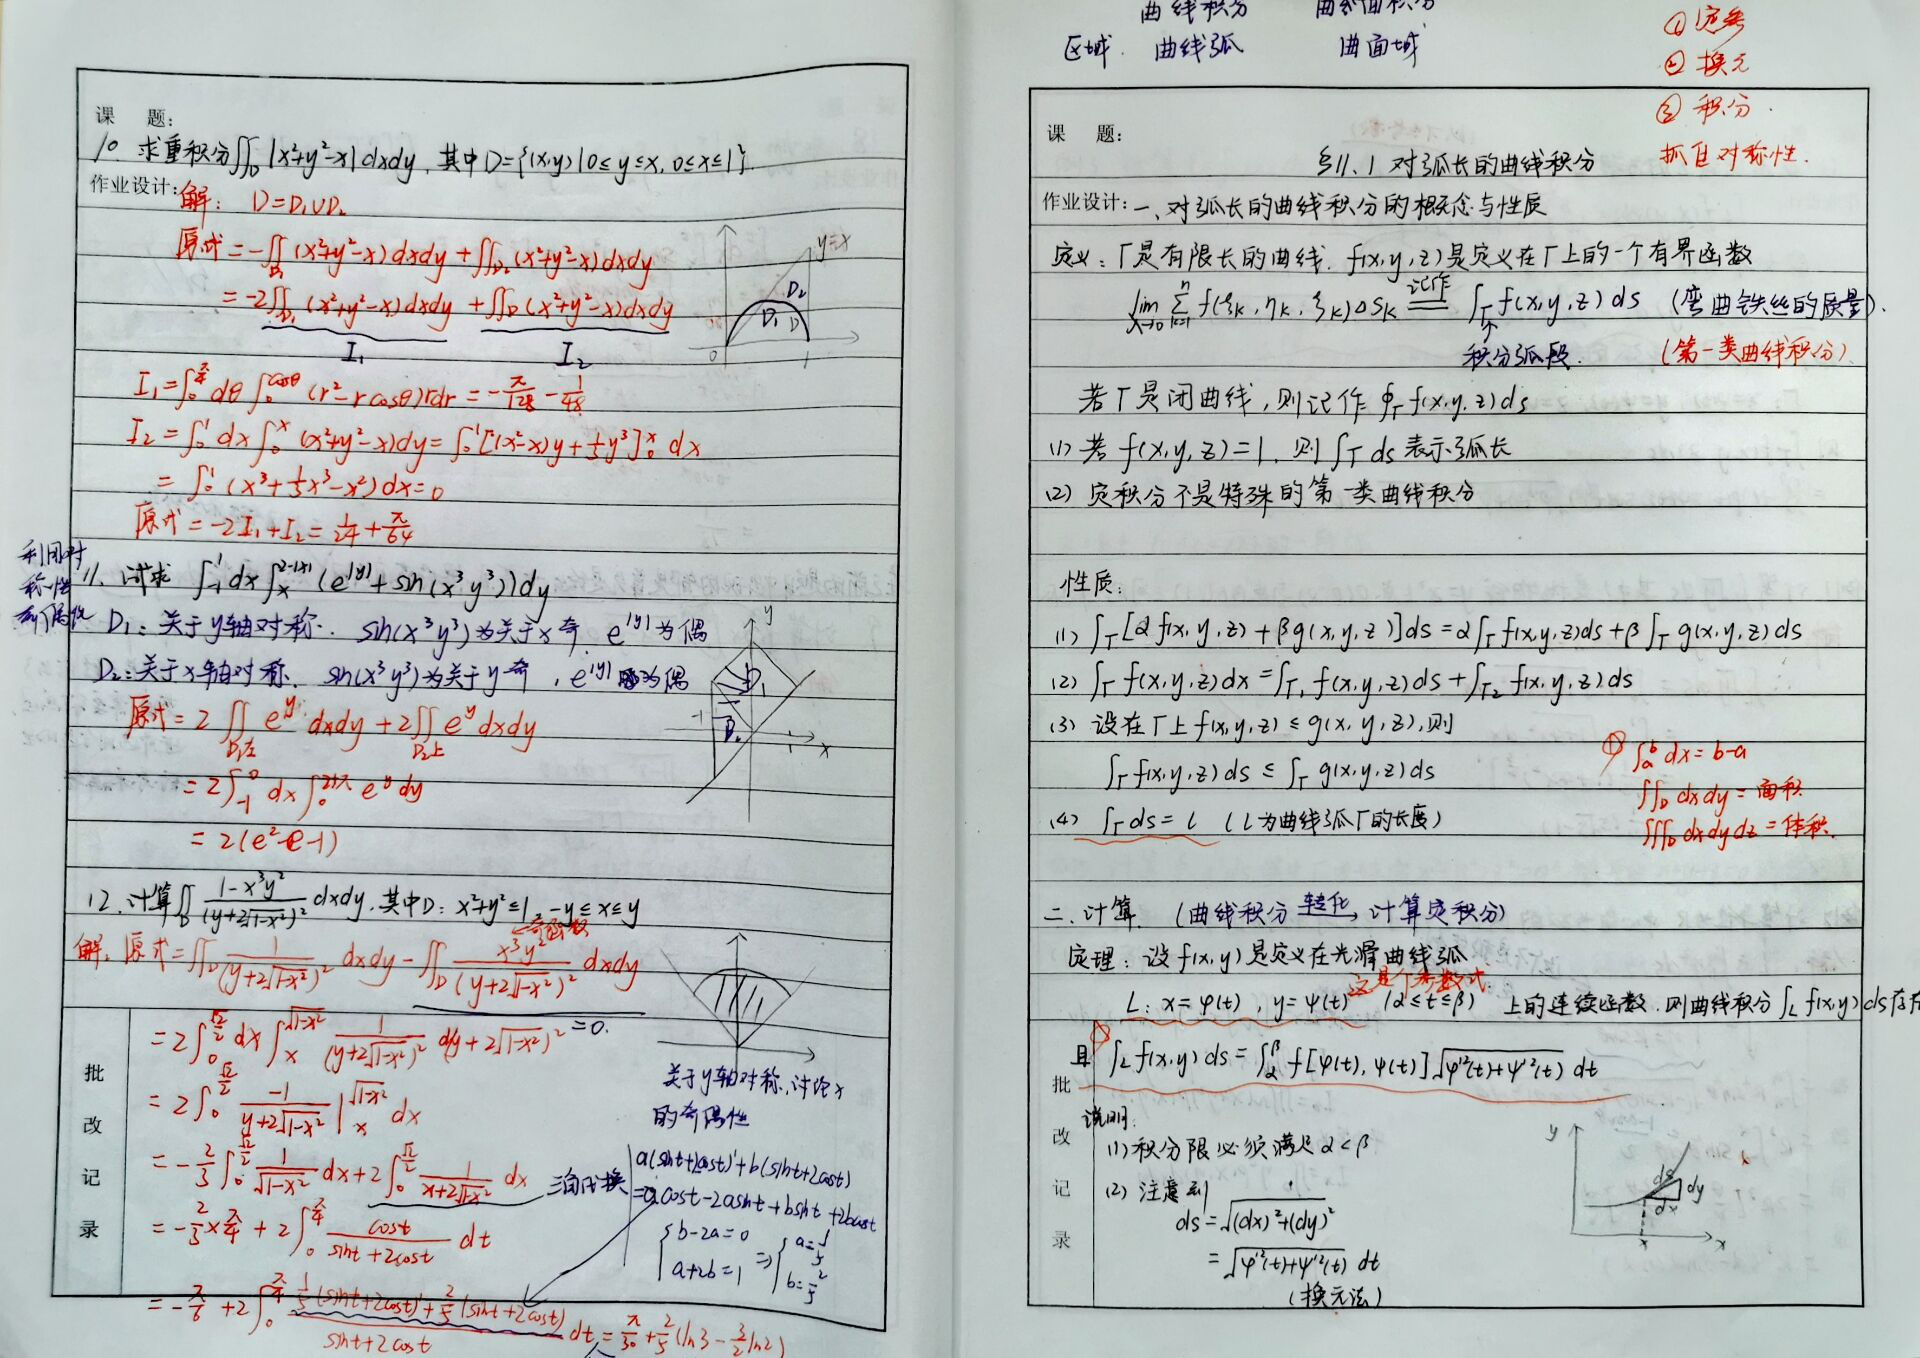 课 题:
10. 求重积分∬_D |x²+y²-x| dxdy, 其中D={(x,y)|0≤y≤x, 0≤x≤1}.
作业设计: 解: D=D₁∪D₂
原式=-∬_{D₁}(x²+y²-x)dxdy+∬_{D₂}(x²+y²-x)dxdy
=-2∬_{D₁}(x²+y²-x)dxdy+∬_D(x²+y²-x)dxdy
I₁ I₂
y=x D₂ D₁ D 0 1
I₁=∫₀^{π/4}dθ∫₀^{cosθ}(r²-rcosθ)rdr=-π/128-1/48
I₂=∫₀¹dx∫₀^x(x²+y²-x)dy=∫₀¹[(x²-x)y+⅓y³]₀^x dx
=∫₀¹(x³+⅓x³-x²)dx=0
原式=-2I₁+I₂=1/24+π/64
利用对
称性
奇偶性
11. 试求 ∫₋₁¹dx∫_x^{2-|x|}(e^{|y|}+sin(x³y³))dy
D₁: 关于y轴对称. sin(x³y³)为关于x奇, e^{|y|}为偶
D₂: 关于x轴对称. sin(x³y³)为关于y奇, e^{|y|}为偶
y D₁ -1 D₂ 1 x
原式=2∬_{D₁左}e^y dxdy+2∬_{D₂上}e^y dxdy
=2∫₋₁⁰dx∫₀^{2+x}e^y dy
=2(e²-e-1)
12. 计算∬_D (1-x³y²)/(y+2√(1-x²))² dxdy. 其中D: x²+y²≤1, -y≤x≤y
奇函数
解: 原式=∬_D 1/(y+2√(1-x²))² dxdy-∬_D x³y²/(y+2√(1-x²))² dxdy
=0.
=2∫₀^{√2/2}dx∫_x^{√(1-x²)} 1/(y+2√(1-x²))² d(y+2√(1-x²))
=2∫₀^{√2/2} -1/(y+2√(1-x²)) |_x^{√(1-x²)} dx
关于y轴对称,讨论x
的奇偶性
=-2/3∫₀^{√2/2} 1/√(1-x²) dx+2∫₀^{√2/2} 1/(x+2√(1-x²)) dx
三角代换
=-2/3×π/4+2∫₀^{π/4} cost/(sint+2cost) dt
a(sint+2cost)'+b(sint+2cost)
=acost-2asint+bsint+2bcost
{b-2a=0 a+2b=1 ⇒ {a=1/5 b=2/5
=-π/6+2∫₀^{π/4} (1/5(sint+2cost)'+2/5(sint+2cost))/(sint+2cost) dt=π/30+2/5(ln3-3/2ln2)
批
改
记
录
曲线积分 曲面积分
区域. 曲线弧 曲面域
① 定参
② 换元
③ 积分.
抓住对称性.
课 题:
§11.1 对弧长的曲线积分
作业设计: 一、对弧长的曲线积分的概念与性质
定义: Γ是有限长的曲线. f(x,y,z)是定义在Γ上的一个有界函数
lim_{λ→0} Σ_{k=1}^n f(ξk,ηk,ζk)ΔSk 记作 ∫_Γ f(x,y,z)ds (弯曲铁丝的质量).
积分弧段. (第一类曲线积分)
若Γ是闭曲线, 则记作 ∮_Γ f(x,y,z)ds
(1) 若 f(x,y,z)=1. 则∫_Γ ds表示弧长
(2) 定积分不是特殊的第一类曲线积分
性质:
(1) ∫_Γ[αf(x,y,z)+βg(x,y,z)]ds=α∫_Γ f(x,y,z)ds+β∫_Γ g(x,y,z)ds
(2) ∫_Γ f(x,y,z)dx=∫_{Γ₁}f(x,y,z)ds+∫_{Γ₂}f(x,y,z)ds
(3) 设在Γ上f(x,y,z)≤g(x,y,z),则
∫_Γ f(x,y,z)ds≤∫_Γ g(x,y,z)ds
① ∫_a^b dx=b-a
∬_D dxdy=面积
∭_D dxdydz=体积.
(4) ∫_Γ ds=l (l为曲线弧Γ的长度)
二.计算. (曲线积分 转化→ 计算定积分)
定理: 设f(x,y)是定义在光滑曲线弧
这是个参数式.
L: x=φ(t), y=ψ(t) (α≤t≤β) 上的连续函数. 则曲线积分∫_L f(x,y)ds存在
且 ∫_L f(x,y)ds=∫_α^β f[φ(t),ψ(t)]√(φ'²(t)+ψ'²(t)) dt
说明:
(1)积分限必须满足α<β
(2) 注意到
ds=√((dx)²+(dy)²)
=√(φ'²(t)+ψ'²(t)) dt
(换元法)
y ds dy dx x x
批
改
记
录